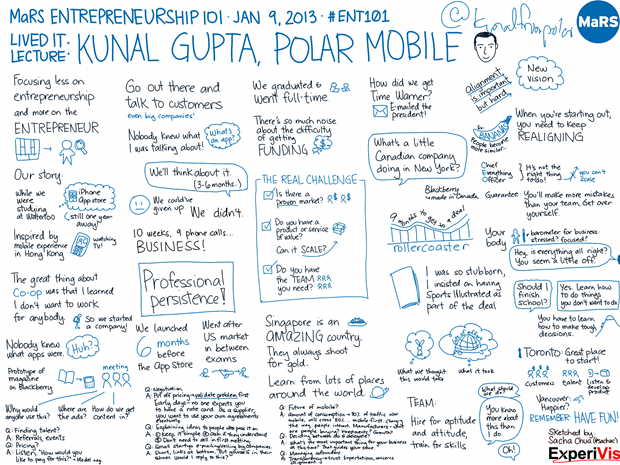 MaRS ENTREPRENEURSHIP 101 · JAN 9, 2013 · #ENT101
LIVED IT:
LECTURE:
KUNAL GUPTA, POLAR MOBILE
@kunalfrompolar
MaRS
Focusing less on
entrepreneurship
and more on the
ENTREPRENEUR
Our story:
While we
were
studying
at Waterloo
iPhone
App store
still one year
away!
Inspired by
mobile experience
in Hong Kong
watching
TV!
The great thing about
Co-op was that I learned
I don't want to work
for anybody.
So we started
a company!
Nobody knew
what apps were.
Huh?
Prototype of
magazine
on BlackBerry
meeting
Why would
anyone use this?
Where are
the ads?
How do we get
content in?
Q: Finding talent?
A: Referrals, events
Q: Pricing?
A: Listen. "How would you
like to pay for this?"
Go out there and
talk to customers
even big companies!
Nobody knew what
I was talking about!
What's
an app?
We'll think about it.
(3-6 months...)
We could've
given up
We didn't.
10 weeks, 9 phone calls...
BUSINESS!
Professional
persistence!
We launched
6
months
before
the App Store
Went after
US market
in between
exams
Q: Negotiation
A: Put off pricing - validate problem first
Early days - no one expects you
to have a rate card. As a supplier,
you want to use your own agreements
Q: Explaining ideas to people who pass it on
A: ① Keep it simple ② Make sure they understand
③ Don't need to sell in first meeting
Q: Email startup for pitching/selling big companies.
We graduated &
went full-time
There's so much noise
about the difficulty
of getting
FUNDING
THE REAL CHALLENGE
Is there a
proven market?
Do you have a
product or service
of value?
Can it SCALE?
Do you have
the TEAM
you need?
Singapore is an
AMAZING country.
They always shoot
for gold.
Learn from lots of places
around the world.
Q: Future of mobile?
How did we get
Time Warner?
E-mailed the
president!
What's a little
Canadian company
doing in New York?
BlackBerry
made in Canada
9 months to get to a deal
rollercoaster
I was so stubborn,
I insisted on having
Sports Illustrated as
part of the deal
What we thought
this world took
What it took
TEAM:
Hire for aptitude
and attitude,
train for skills
What should
we do?
You know
more about
this than
I do
Oh!
Alignment is
important
but hard
New
vision
BANANAS
People become
more similar...
When you're starting out,
you need to keep
REALIGNING
Chief
Everything
Officer
It's not the
right thing
to do!
you can't
scale
Guarantee:
You'll make more mistakes
than your team. Get over
yourself.
Your
body
barometer for business
stressed? focused?
Hey, is everything all right?
You seem a little off.
Should I
finish
school?
Yes. Learn
how to do
things
you don't want to do
You have to learn
how to make tough
decisions.
Toronto: Great place
to start!
customers
talent
Listen &
develop
product
Vancouver:
Happier?
REMEMBER: HAVE FUN!
Sketched by
Sacha Chua (@sachac)
ExperiVis